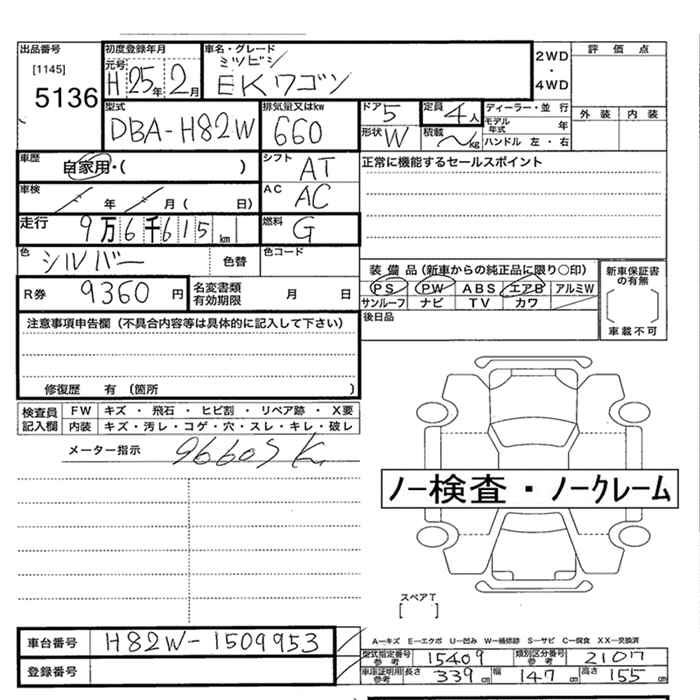 出品番号
[1145]
5136
初度登録年月
元号
H 25年 2月
車名・グレード
ミツビシ
EKワゴン
2WD
・
4WD
評価点
外装 内装
型式
DBA-H82W
排気量又はkw
660
ドア 5
形状 W
定員 4人
積載 〜kg
ディーラー・並 行
モデル年式 年
ハンドル 左・右
車歴
自家用・( )
シフト
AT
正常に機能するセールスポイント
車検
年 月 ( 日)
AC
AC
走行
9万6千615km
燃料
G
色
シルバー
色替
色コード
R券
9360円
名変書類
有効期限
月 日
装備品(新車からの純正品に限り○印)
PS PW ABS エアB アルミW
サンルーフ ナビ TV カワ
新車保証書
の有無
車載不可
後日品
注意事項申告欄(不具合内容等は具体的に記入して下さい)
修復歴 有 (箇所 )
検査員
記入欄
FW キズ・飛石・ヒビ割・リペア跡・X要
内装 キズ・汚レ・コゲ・穴・スレ・キレ・破レ
メーター指示
96605K
ノー検査・ノークレーム
スペアT
[ ]
車台番号
H82W-1509953
登録番号
A−キズ E−エクボ U−凹み W−補修跡 S−サビ C−腐食 XX−交換済
型式指定番号
参考
15409
類別区分番号
参考
2107
車庫証明用
参考
長さ 339cm 幅 147cm 高さ 155cm